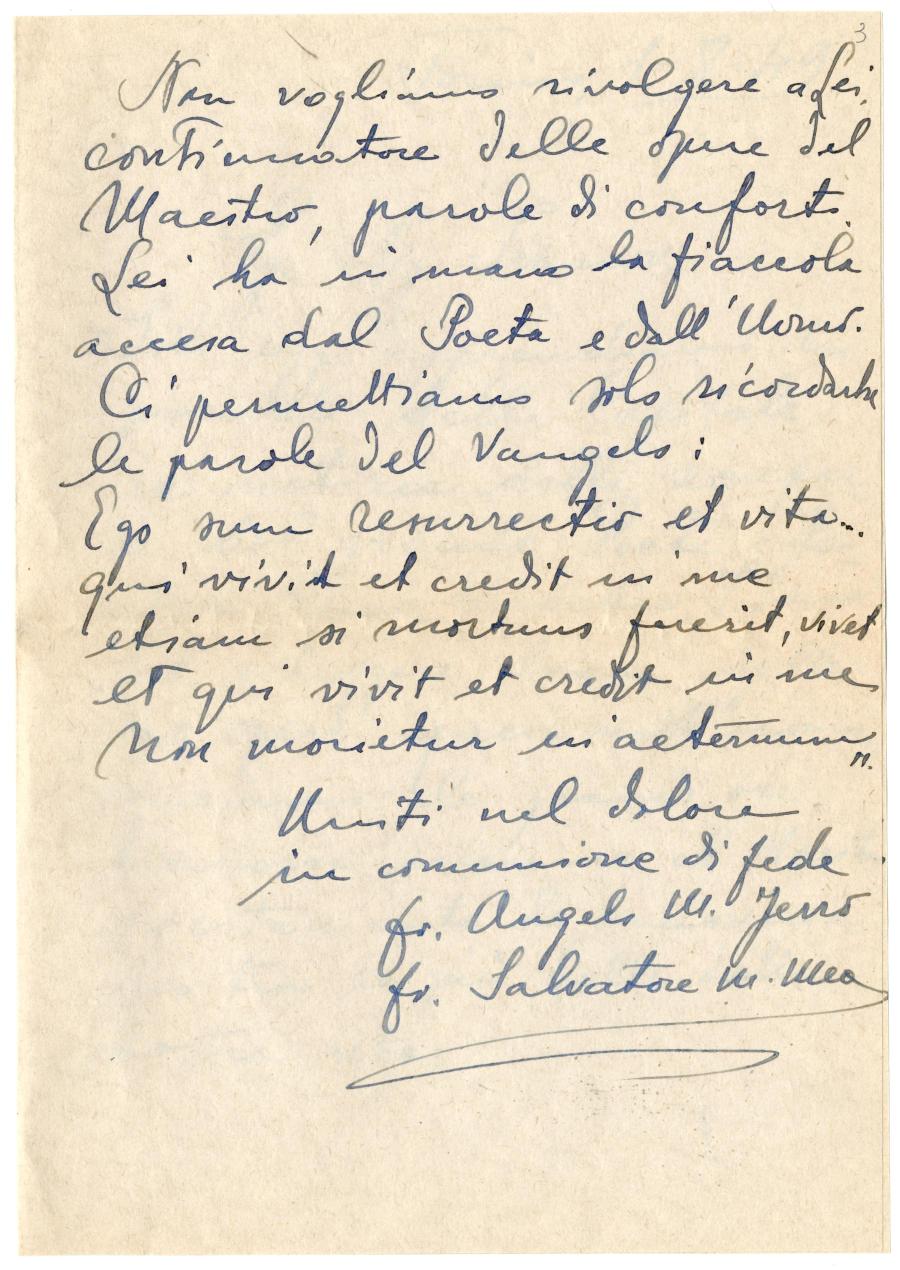 3
Non vogliamo rivolgere a Lei,
continuatore delle opere del
Maestro, parole di conforto.
Lei ha in mano la fiaccola
accesa dal Poeta e dall'Uomo.
Ci permettiamo solo ricordarLe
le parole del Vangelo:
Ego sum resurrectio et vita...
qui vivit et credit in me
etiam si mortuus fuerit, vivet
et qui vivit et credit in me
non morietur in aeternum".
Uniti nel dolore
in comunione di fede
fr. Angelo M.
fr. Salvatore M. Meo